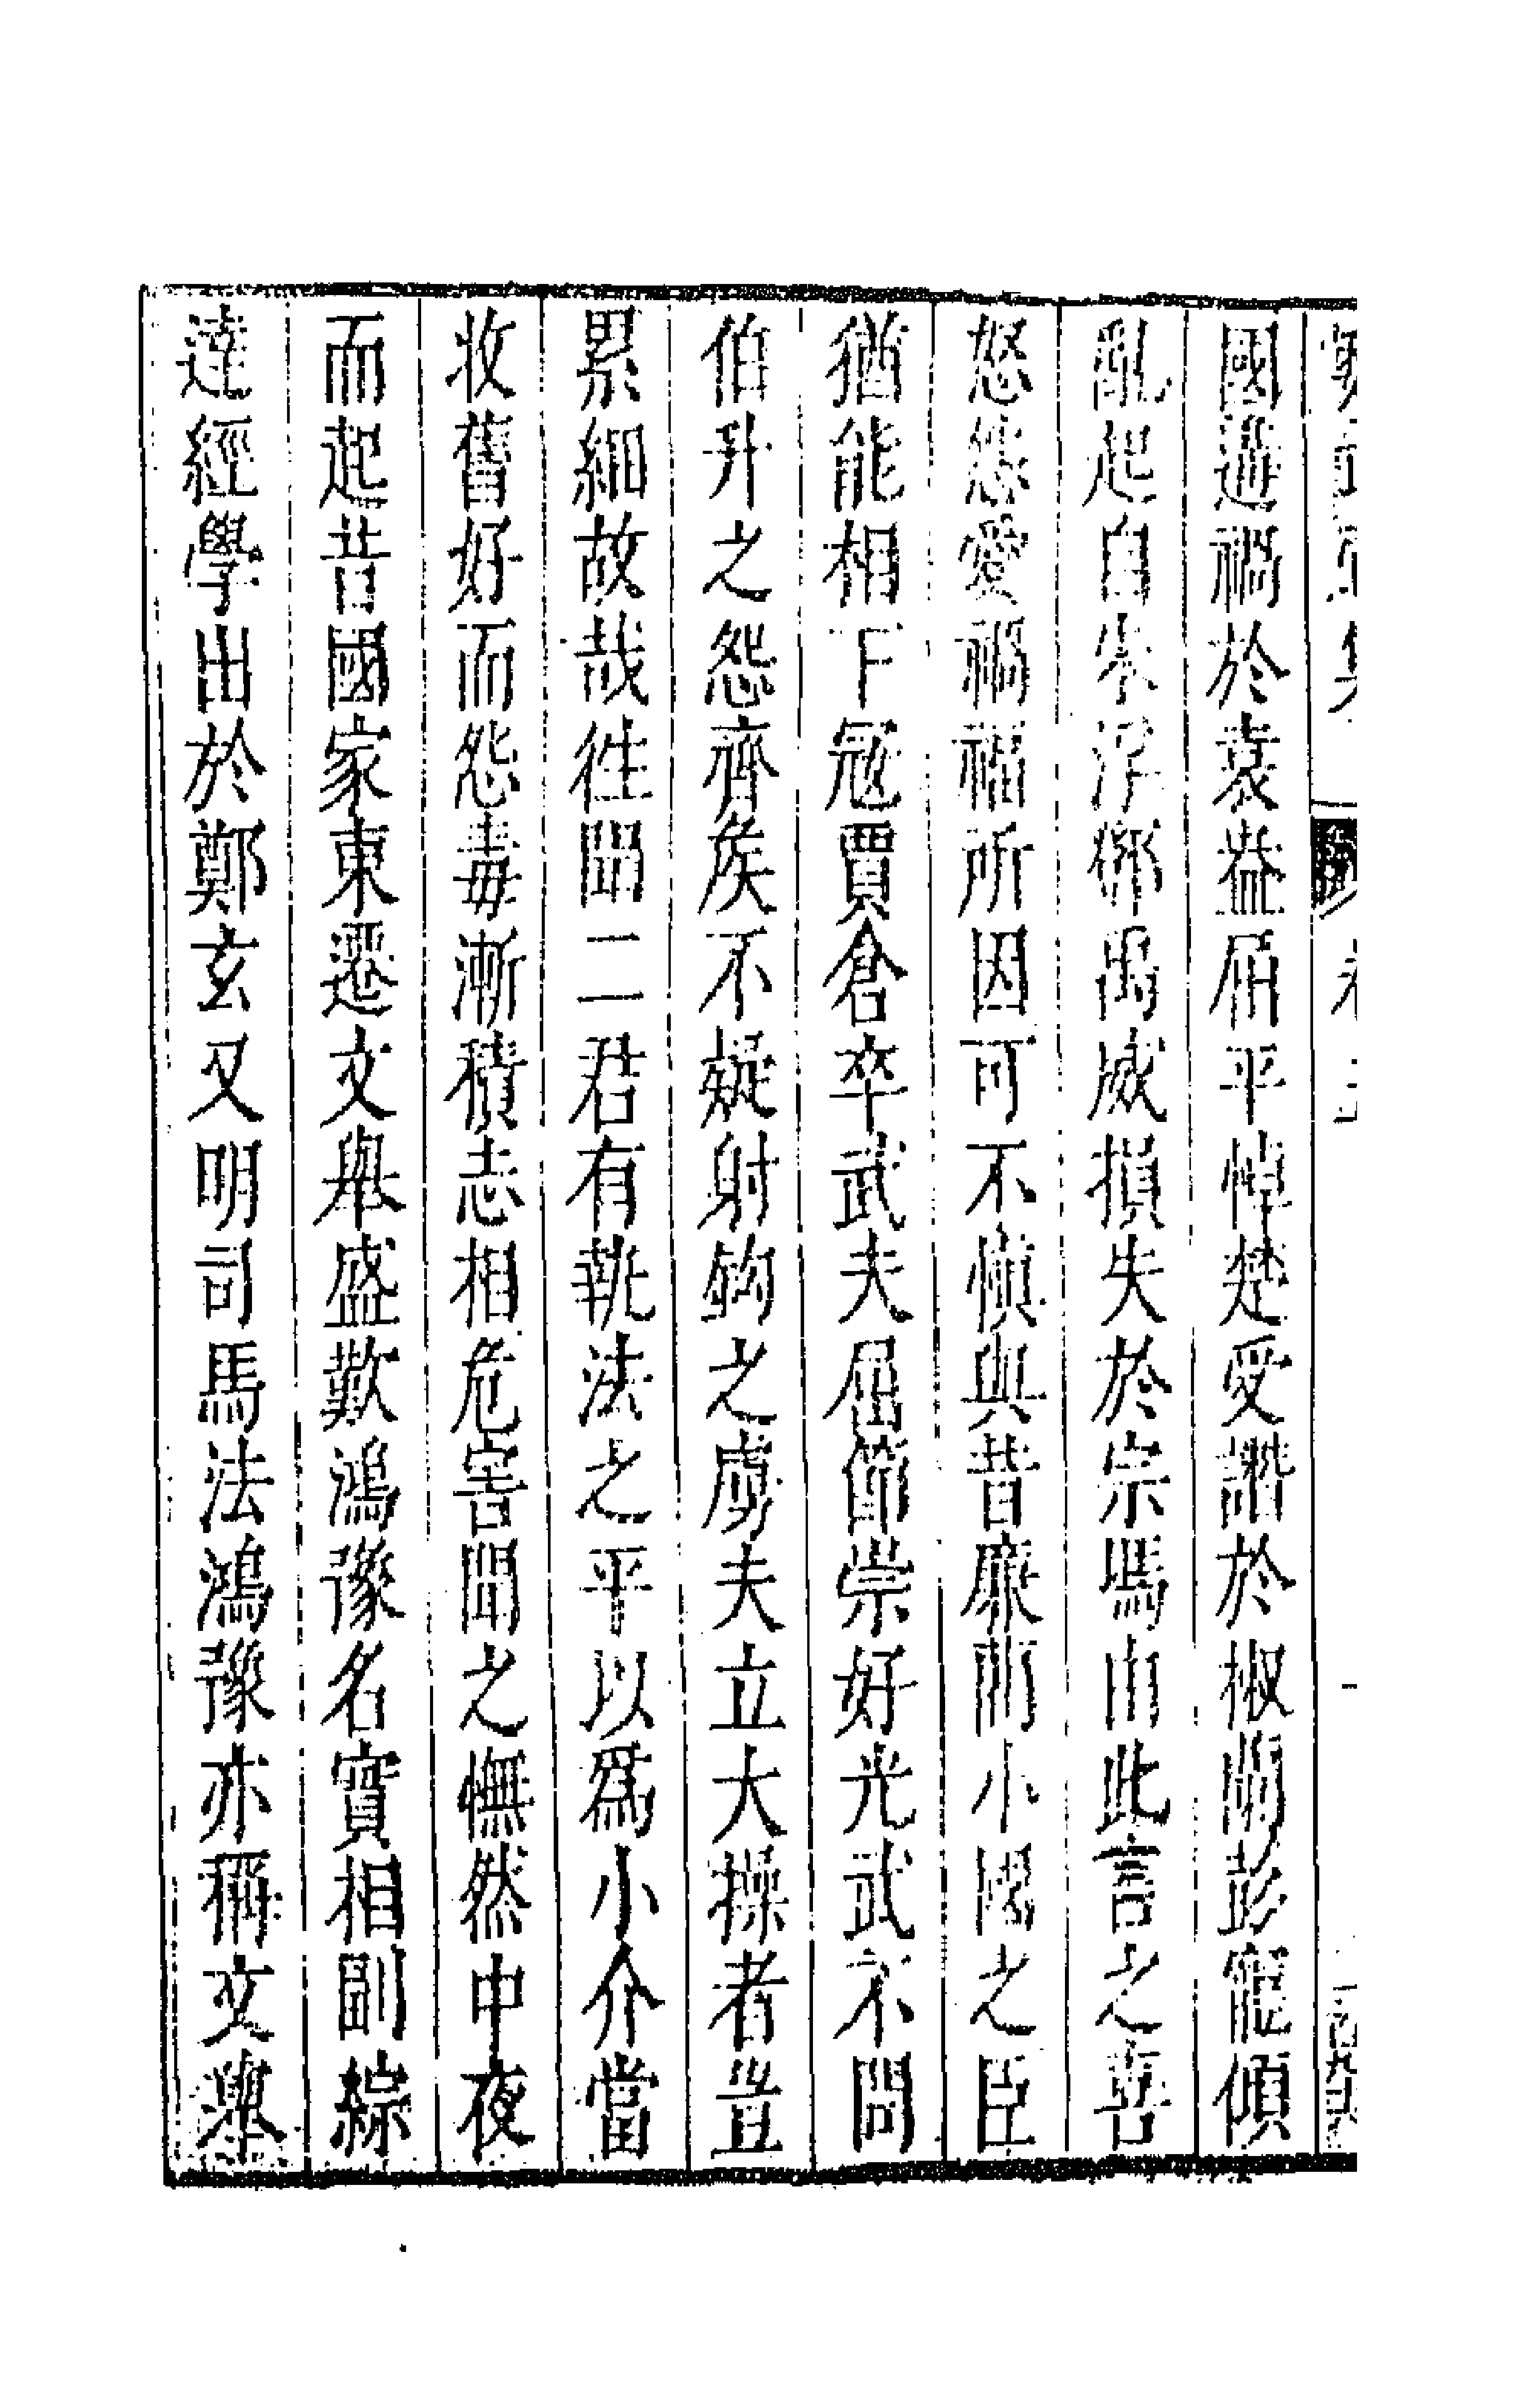 國遘禍於袁盎屈平悼楚受譖於椒蘭彭寵傾
亂起自朱浮鄧禹威損失於宗馮由此言之喜
怒怨愛禍福所因可不慎與昔廉藺小國之臣
猶能相下寇賈倉卒武夫屈節崇好光武不問
伯升之怨齊矦不疑射鉤之虜夫立大操者豈
累細故哉徃聞二君有執法之平以爲小介當
收舊好而怨毒漸積志相危害聞之憮然中夜
而起昔國家東遷文舉盛歎鴻豫名實相副綜
達經學出於鄭玄又明司馬法鴻豫亦稱文舉